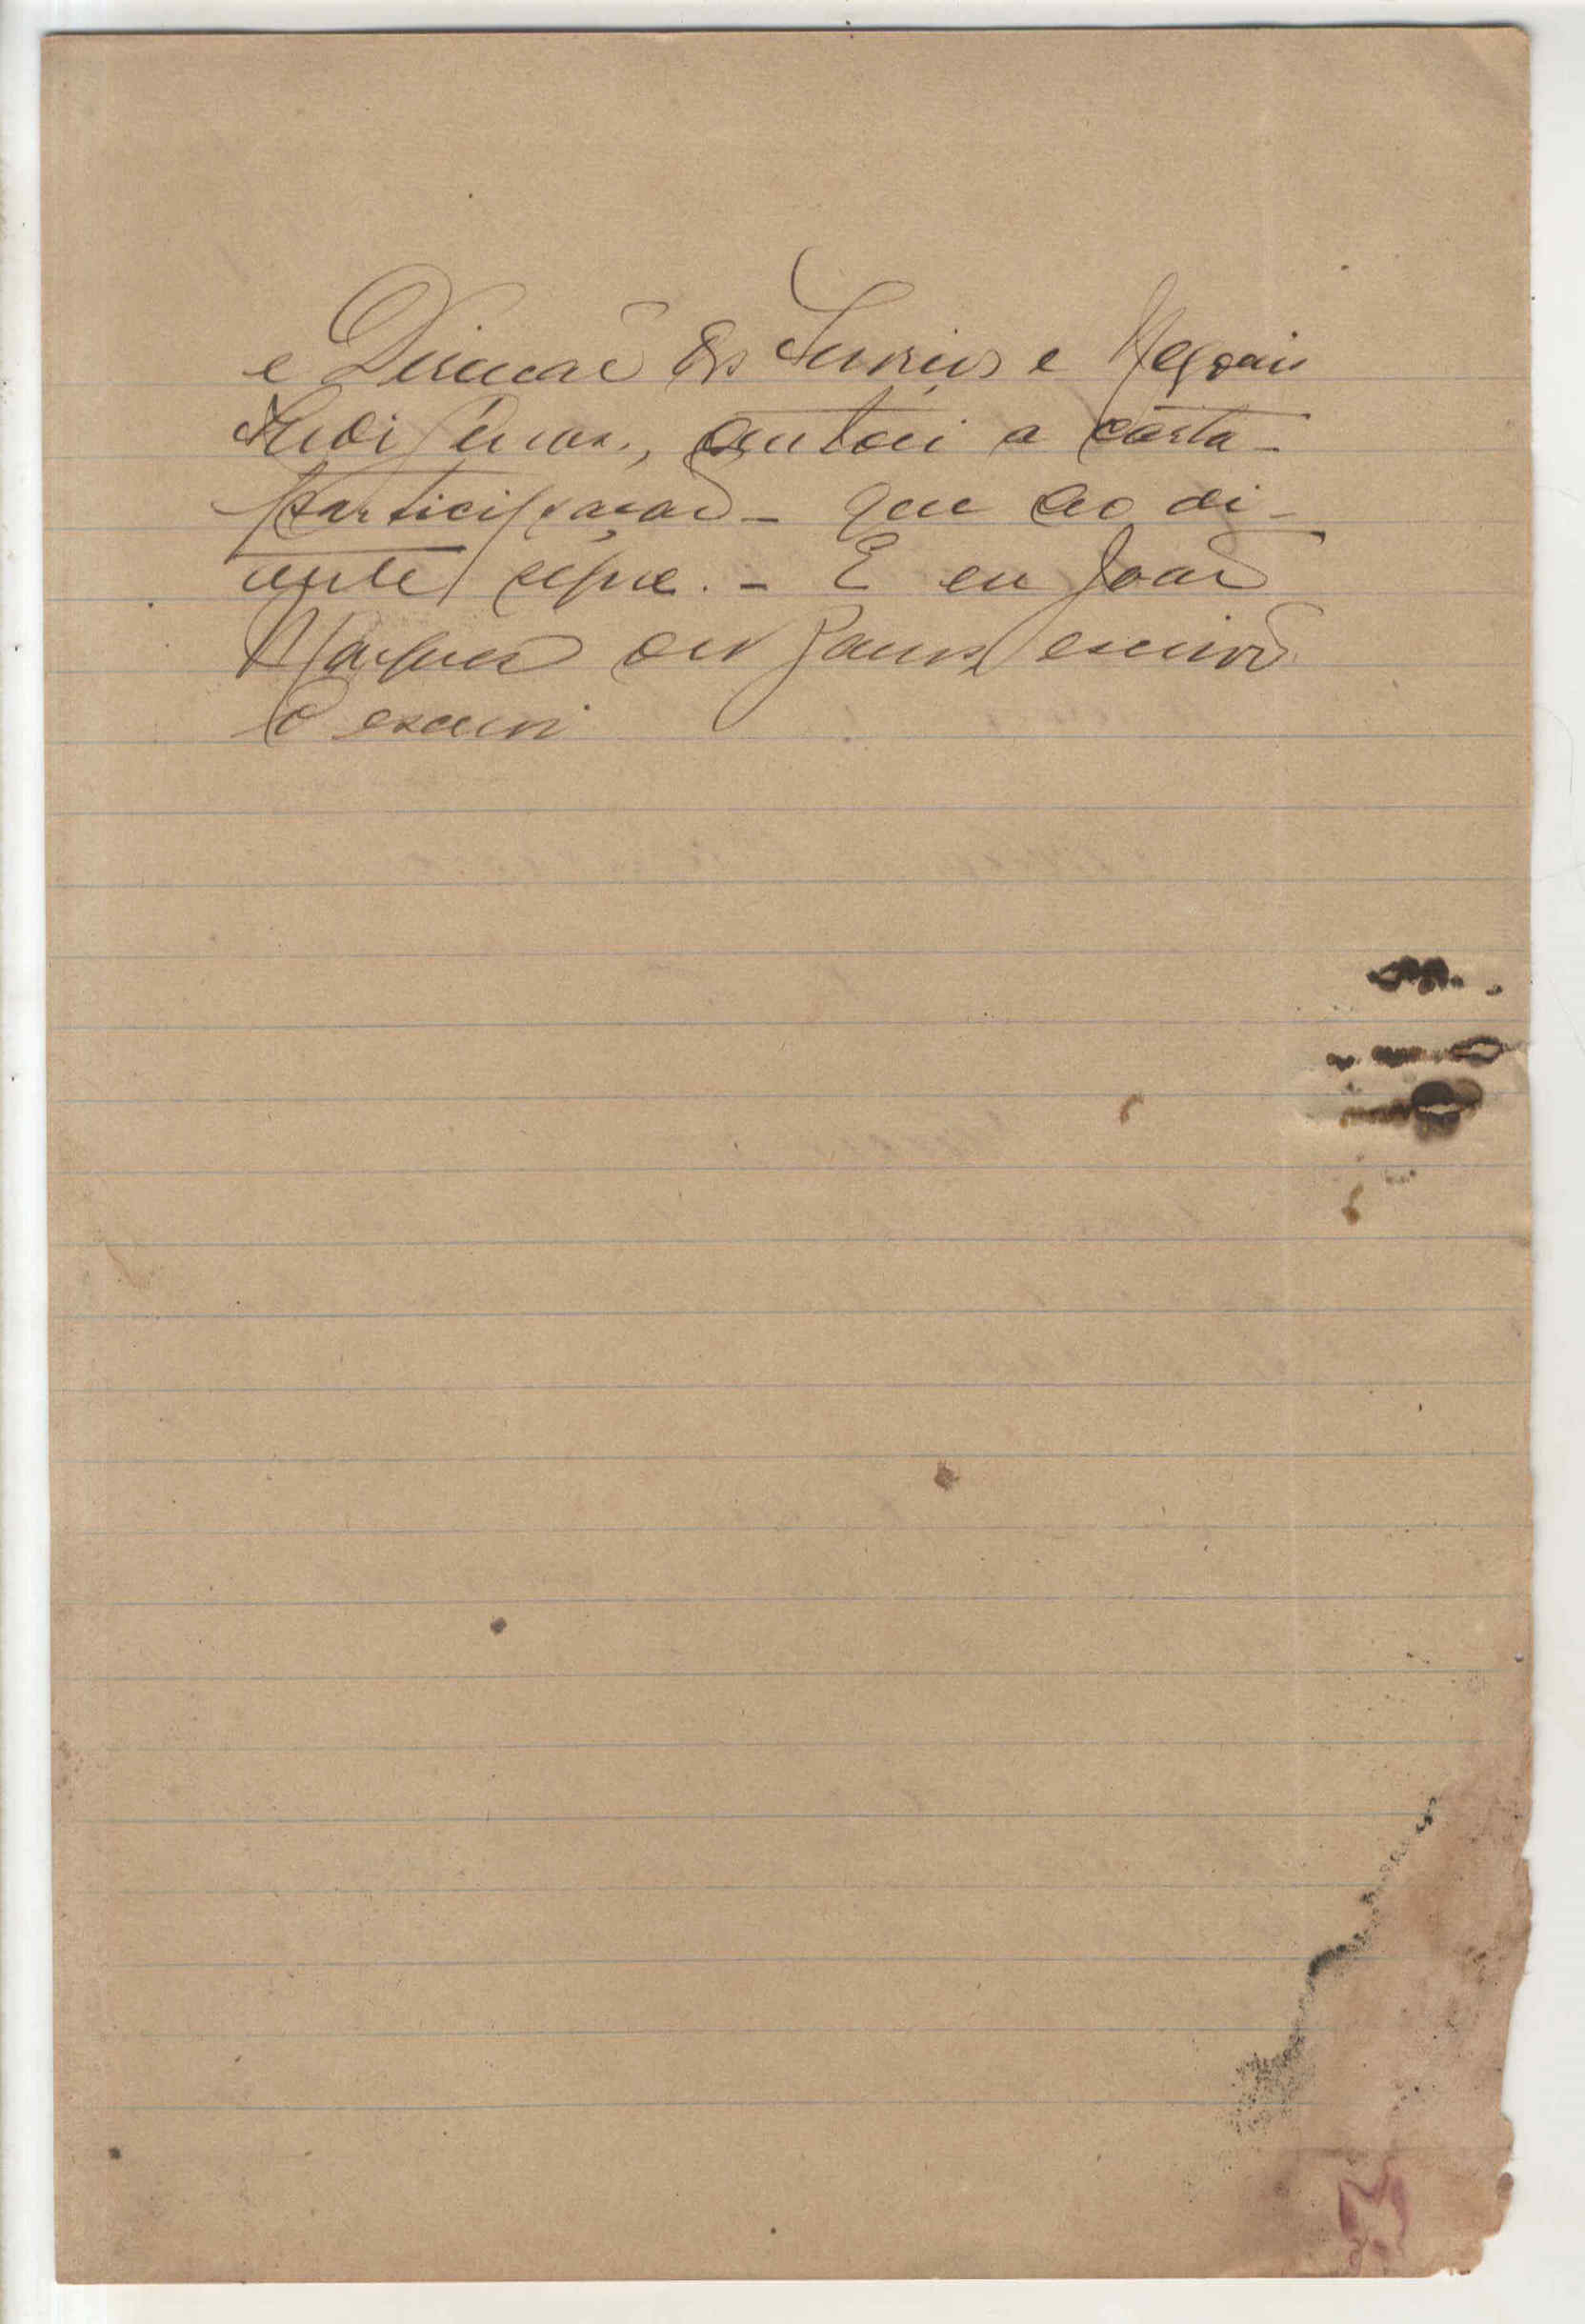 e Direcção dos Serviços e Negocios
Indigenas, autoei a carta-
participação - que ao di-
ante segue. - E eu João
Marques dos Santos escrivão
o escrevi